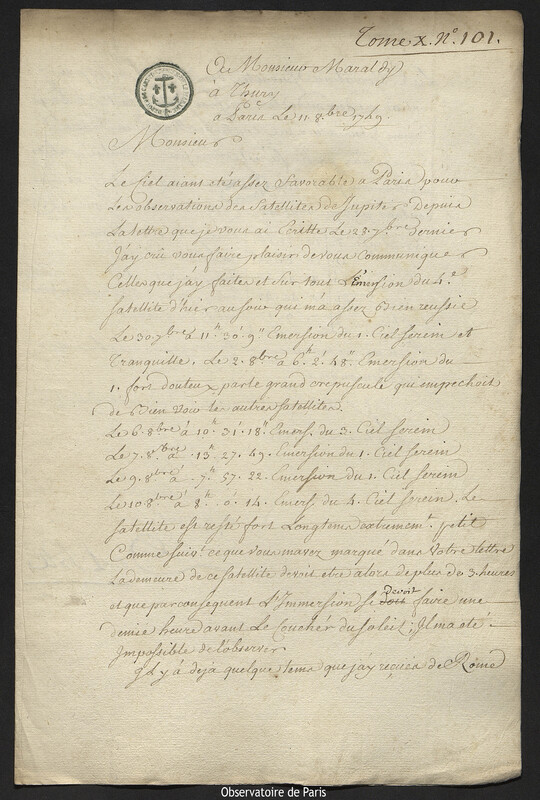 Tome X. N.º 101.
De Monsieur Maraldy
à Thury
a Paris Le 11. 8.bre 1749.
Monsieur
Le Ciel aiant eté assez favorable a Paris pour
Les observations des Satellites de Jupiter depuis
La lettre que je vous ai Ecritte Le 28. 7.bre Dernier
J'ay crû vous faire plaisir de vous Communiquer
Celles que j'ay faites et sur tout L'Emersion du 4.e
Satellite d'hier au soir qui m'a assez bien reussie
Le 30 7bre à 11h 30' 9" Emersion du 1. Ciel serein et
tranquille. Le 2. 8bre à 6h 2' 48" Emersion du
1. fort douteux, par le grand crepuscule qui empechoit
de bien voir les autres satellites.
Le 6. 8bre à 10h 31' 18" Emers. du 3. Ciel serein
Le 7. 8bre à 13h 27. 49. Emersion du 1. Ciel serein
Le 9. 8bre à 7h 57. 22. Emersion du 1. Ciel serein
Le 10 8bre à 8h 0' 14. Emers. du 4. Ciel serein. Le
satellite est resté fort Longtems extremem.t petit
Comme suiv.t ce que vous m'avez marqué dans Votre lettre
La demeure de ce satellite devoit etre alors de plus de 3. heures
et que par consequent L'Immersion se devoit faire une
demie heure avant Le Coucher du soleil; Il m'a eté
Impossible de l'observer
Il y a deja quelque tems que j'ay reçû de Rome
Observatoire de Paris